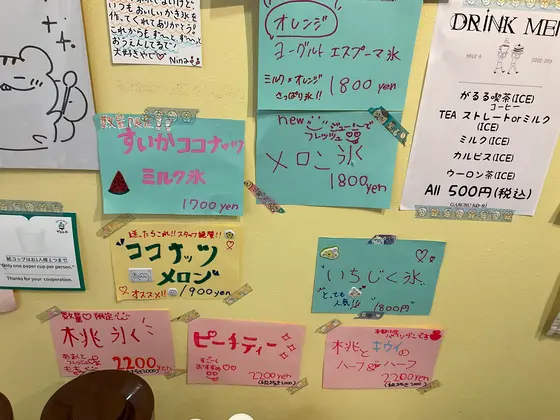 いつもおいしいかき氷を
作ってくれてありがとう!
これからもず〜と、ず〜っと
おうえんしてる!
大好きやで♡
Ninaより
オレンジ
ヨーグルト エスプーマ 氷
ミルク×オレンジ
さっぱり氷!!
1800yen
DRINK ME
がるる喫茶(ICE)
コーヒー
TEA ストレートorミルク
(ICE)
ミルク(ICE)
カルピス(ICE)
ウーロン茶(ICE)
All 500円(税込)
数量限定
すいかココナッツ
ミルク氷
1700yen
new
ジューシーで
フレッシュ♡
メロン氷
1800yen
紙コップはお1人様1つまで
"Only one paper cup per person."
Thanks for your cooperation.
迷ったらこれ!!スタッフ絶賛!!
"ココナッツ
メロン"
オススメ!!
1900yen
"いちじく氷"
とっても
人気!!
1800円
数量♡限定
桃氷
2200yen
ピーチティー
すごーく
おすすめ
2200yen
桃とキウイの
ハーフ&ハーフ
2200yen